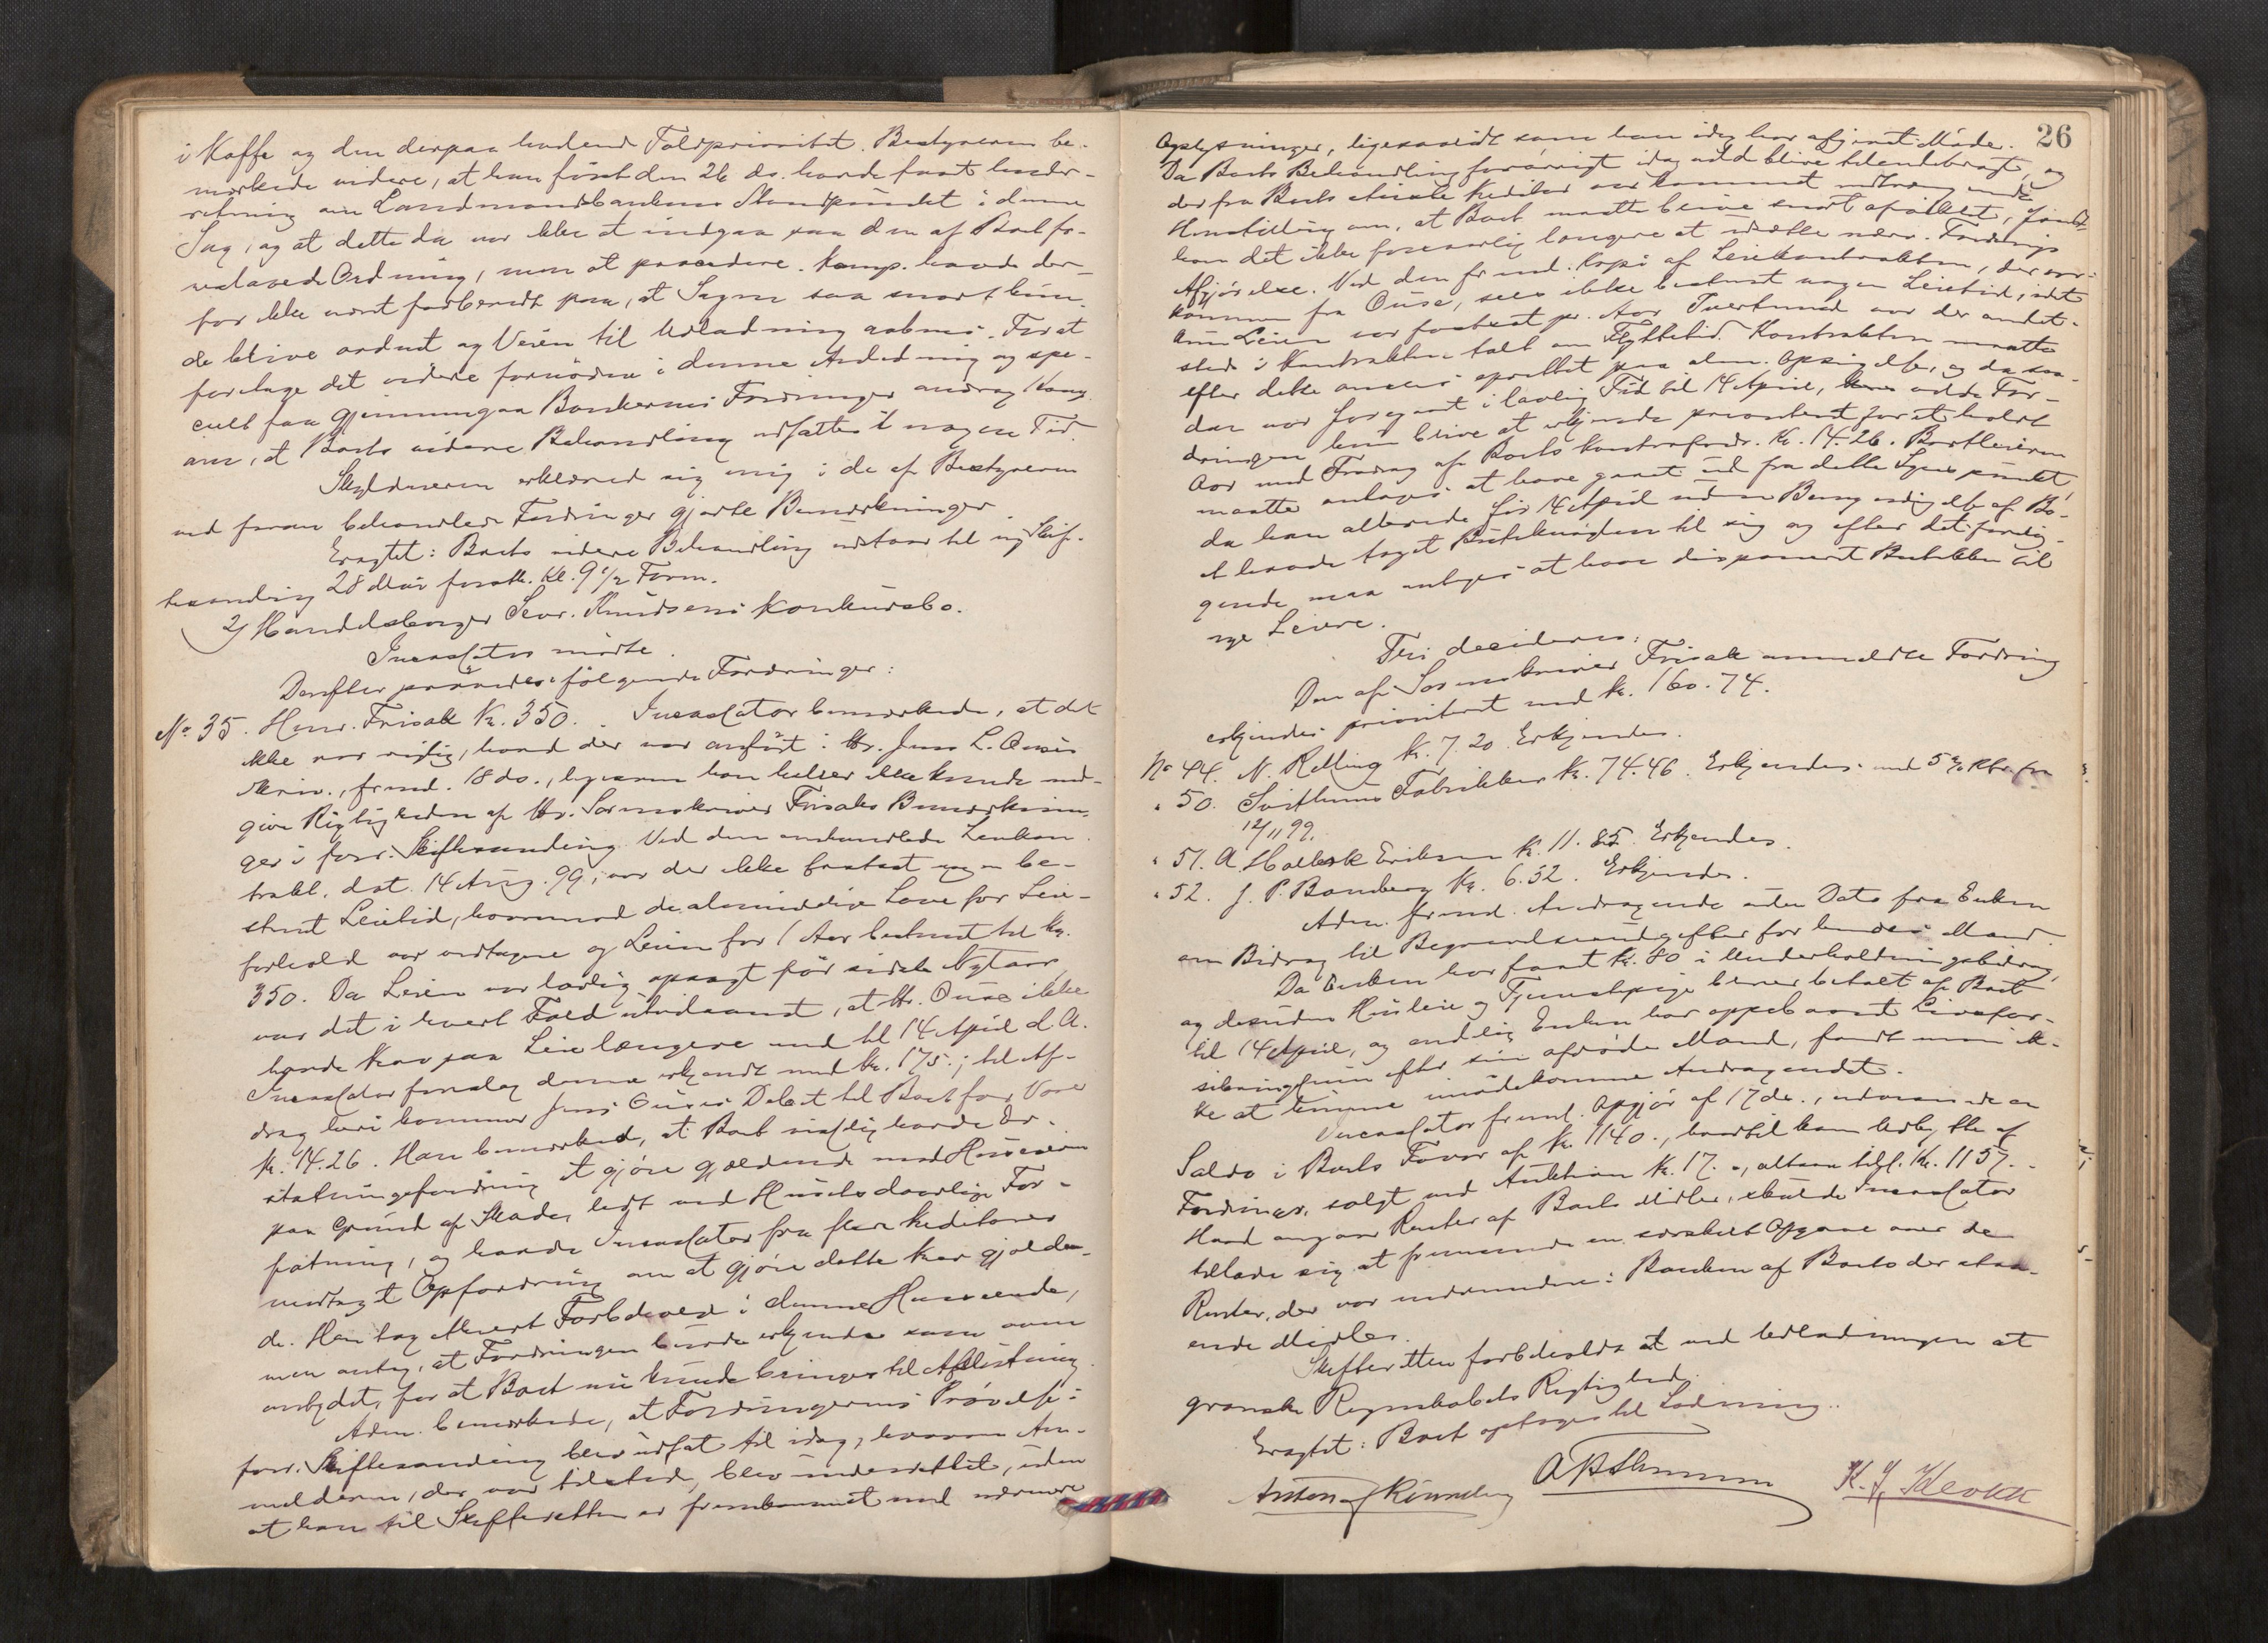 i Kaffe og den derpaa hvilende Toldprioritet. Bestyreren be-
mærkede videre, at han først den 26 ds. havde faaet under-
retning om Landmandsbankens Standpunkt i denne
Sag, og at dette da var ikke at indgaa paa den af Boet fo-
reslaaede Ordning, men at procedere. Komp. havde der-
for ikke været forberedt paa, at Sagen saa snart kun-
de blive ordnet og Veien til Udlodning aabnes. For at
foretage det videre fornødne i denne Anledning og spe-
cielt faa gjennemgaa Bankernes Fordringer androg Komp.
om, at Boets videre Behandling udsattes i nogen Tid.
Skyldneren erklærede sig enig i de af Bestyreren
ved foran behandlede Fordringer gjorte Bemærkninger.
Eragtet: Boets videre Behandling udstaar til ny Skif-
tesamling 28 Mai førstk. Kl. 9 1/2 Form.
2) Handelsborger Sevr. Knudsens Konkursbo.
Incassator mødte.
Derefter prøvedes følgende Fordringer:
No 35. Henr. Frisak Kr. 350. Incassator bemærkede, at det
ikke var rigtig, hvad der var anført i Hr. Jens L. Ouses
Skriv., fremd. 18 ds., ligesom han heller ikke kunde med-
give Rigtigheden af Hr. Sorenskriver Frisaks Bemærknin-
ger i forr. Skiftesamling. Ved den omhandlede Leiekon-
trakt, dat. 14 Aug. 99, var der ikke fastsat nogen be-
stemt Leietid, hvorimod de almindelige Love for Leie-
forhold var vedtagne og Leien for 1 Aar bestemt til Kr.
350. Da Leien var lovlig opsagt før sidste Nytaar
var det i hvert Fald utvilsomt, at Hr. Ouse ikke
havde Krav paa Leie længere end til 14 April d. A.
Incassator foreslog denne erkjendt med Kr. 175.; til Af-
drag heri kommer Jens Ouses Debet til Boet for Varer
Kr. 14.26. Han bemærkede, at Boet visselig havde Er-
statningsfordring at gjøre gjældende mod Huseieren
paa Grund af Skade, lidt ved Husets daarlige For-
fatning, og havde Incassator fra flere Kreditorer
modtaget Opfordring om at gjøre dette Krav gjælden-
de. Han tog ethvert Forbehold i denne Henseende,
men antog, at Fordringen burde erkjendes som oven
anbydt, for at Boet nu kunde bringes til Afslutning.
Adm. bemærkede, at Fordringernes Prøvelse i
forr. Skiftesamling blev udsat til idag, hvorom An-
melderen, der var tilstede, blev underrettet, uden
at han til Skifteretten er fremkommet med nærmere
26
Oplysninger, ligesaalidt som han idag har afgivet Møde.
Da Boets Behandling forøvrigt idag vilde blive tilendebragt, og
der fra Boets største Kreditor var kommet indtrængende
Henstilling om, at Boet maatte blive snart afsluttet, fandt
han det ikke forsvarlig længere at udsætte nærv. Fordrings
Afgjørelse. Ved den fremd. Kopi af Leiekontrakten, der var
kommen fra Ouse, sees ikke bestemt nogen Leietid, idet
kun Leien var fastsat pr. Aar. Tvertimod var der andet-
steds i Kontrakten talt om Flyttetid. Kontrakten maatte
efter dette ansees oprettet paa alm. Opsigelse, og da saa-
dan var foregaaet i lovlig Tid til 14 April, vilde For-
dringen kun blive at erkjende prioriteret for et halvt
Aar med Fradrag af Boets Kontrafordr. Kr. 14.26. Bortleieren
maatte antages at have gaaet ud fra dette Synspunkt,
da han allerede før 14 April uden Bemyndigelse af Bo-
et havde taget Butiknøglen til sig og efter det forelig-
gende maa antages at have disponeret Butikken til
nye Leiere.
Thi decideres:
Den af Sorenskriver Frisak anmeldte Fordring
erkjendes prioriteret med Kr. 160.74.
No 44. N. Relling Kr. 7.20. Erkjendes.
" 50. Svithuns Fabrikker Kr. 74.46. Erkjendes med 5 % Rtr. fra
12/11 99.
" 51. A. Holbek Eriksen Kr. 11.85. Erkjendes.
" 52. J. P. Bamberg Kr. 6.52. Erkjendes.
Adm. fremd. Andragende uden Dato fra Enken
om Bidrag til Begravelsesudgifter for hendes Mand.
Da Enken har faaet Kr. 80 i Underholdningsbidrag,
og desuden Husleie og Tjenestepige bliver betalt af Boet
til 14 April, og endelig Enken har oppebaaret Livsfor-
sikringssum efter sin afdøde Mand, fandt man ik-
ke at kunne imødekomme Andragendet.
Incassator fremd. Opgjør af 17 ds., udvisende en
Saldo i Boets Favør af Kr. 1140., hvortil kom Udbytte af
Fordringer, solgt ved Auktion Kr. 17.-, altsaa tils. Kr. 1157.-
Hvad angaar Renter af Boets Midler, skulde Incassator
tillade sig at fremsende en særskilt Opgave over de
Renter, der var indvundne i Banken af Boets der staa-
ende Midler.
Skifteretten forbeholdt at ved Udlodningen at
granske Regnskabets Rigtighed.
Eragtet: Boet optages til Lodning.
Anton J Rønneberg
K. J. Kleven